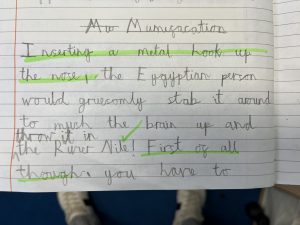 Mumification
Inserting a metal hook up
the nose, the Eygyptian person
would gruesomly stab it around
to much the brain up and
throw it in
the River Nile! First of all
though, you have to